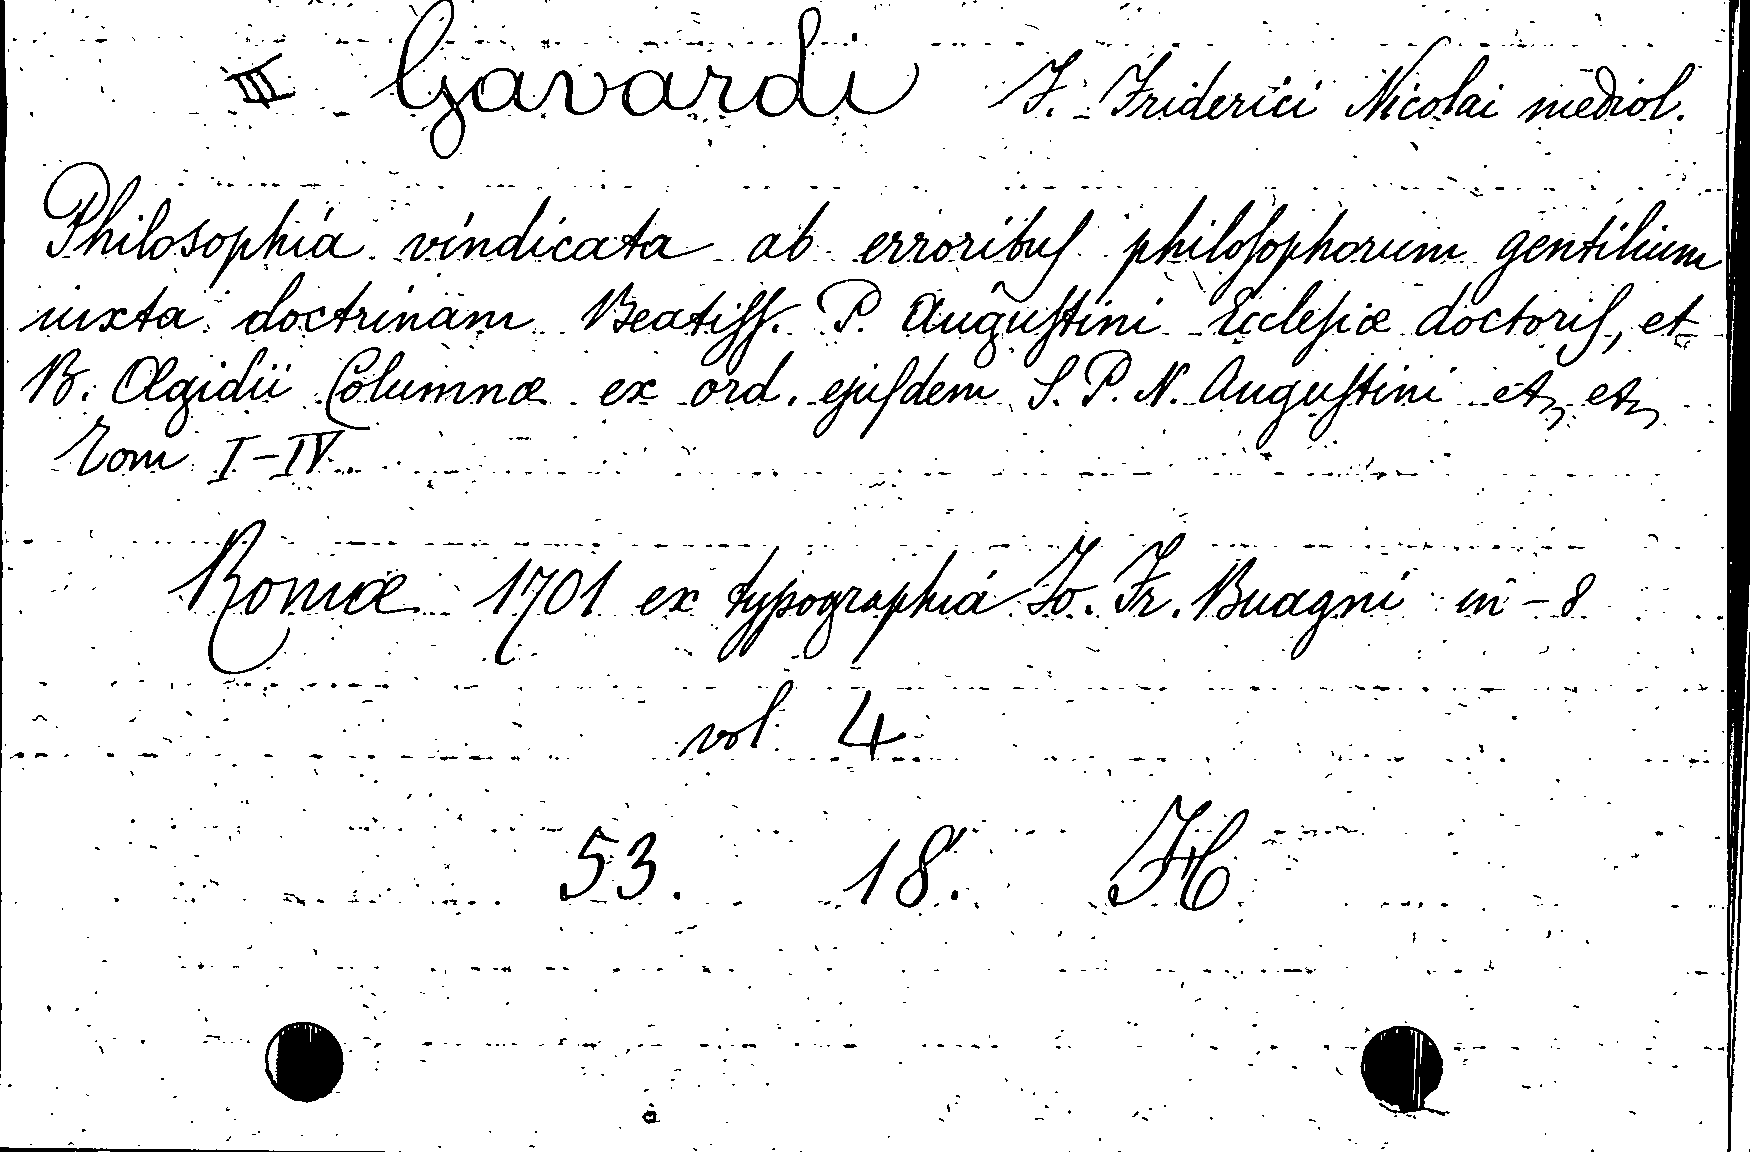 III Gavardi F. Friderici Nicolai mediol.
Philosophia vindicata ab erroribuſ philoſophorum gentilium
iuxta doctrinam Beatiſſ. P. Auguſtini Eccleſiæ doctoriſ, et
B. Ægidii Columnæ ex ord. ejuſdem S. P. N. Auguſtini etc etc
Tom I-IV.
Romæ 1701 ex typographiá Jo. Fr. Buagni in-8
vol. 4
53. 18. H